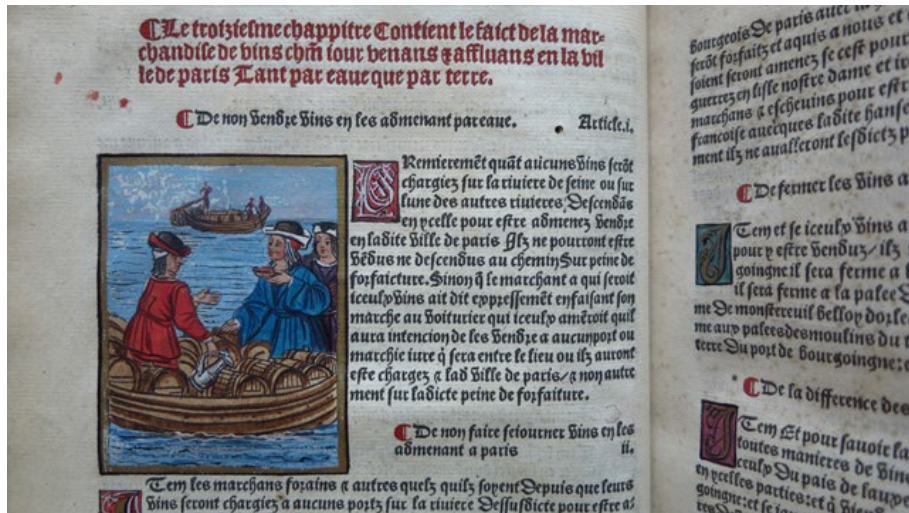 ¶Le troiziesme chappitre Contient le faict de la mar-
chandise de vins chm̄ iour venans ⁊ affluans en la vil
le de paris Tant par eaue que par terre.
¶De non vendre vins en les admenant par eaue. Article.i.
PRemieremēt quāt aucuns vins serōt
chargiez sur la riuiere de seine ou sur
lune des autres riuieres Descendās
en ycelle pour estre admenez vendre
en ladite ville de paris Ilz ne pourront estre
vēdus ne descendus au chemin Sur peine de
forfaicture. Sinon q̄ le marchant a qui seroit
iceulx vins ait dit expressemēt en faisant son
marche au voiturier qui iceulx amēroit quil
aura intencion de les vendre a aucun port ou
marchie iure q̄ sera entre le lieu ou ilz auront
este chargez ⁊ lad ville de paris/ ⁊ non autre
ment sur ladicte peine de forfaiture.
¶De non faire seiourner vins en les
admenant a paris ii.
ITem les marchans forains ⁊ autres quelz quilz soyent Depuis que leurs
vins seront chargiez a aucuns portz sur la riuiere Dessusdicte pour estre a
bourgeois De paris auec la
serōt forfaitz et aquis a nous et
soient seront amenez se cest pour
guerrez en lisle nostre dame et
marchans ⁊ escheuins pour estre
francoise auecques ladite hanse
ment ilz ne aualleront lesdictz
¶De fermer les vins a
ITem et se iceulx vins a
pour y estre venduz/ ilz
goingne il sera ferme a l
il sera ferme a la palee D
me De monstereuil belloy dorle
me aux palees des moulins du t
terre Du port de bourgoingne:
¶De la difference des
ITem Et pour sauoir la
toutes manieres de vins
iceulx Du pais de
en ycelles parties: et q̄
goingne: et se